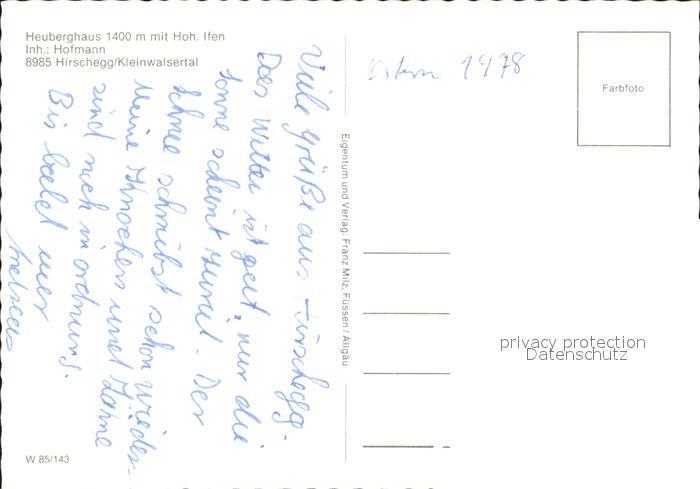 Heuberghaus 1400 m mit Hoh. Ifen
Inh.: Hofmann
8985 Hirschegg/Kleinwalsertal
Viele Grüße aus Hirschegg.
Das Wetter ist gut, nur die
Sonne scheint nicht. Der
Schnee schmilzt schon wieder.
Meine Knochen und Zähne
sind noch in ordnung.
Bis bald euer
Ostern 1978
Farbfoto
Eigentum und Verlag: Franz Milz, Füssen/Allgäu
privacy protection
Datenschutz
W 85/143